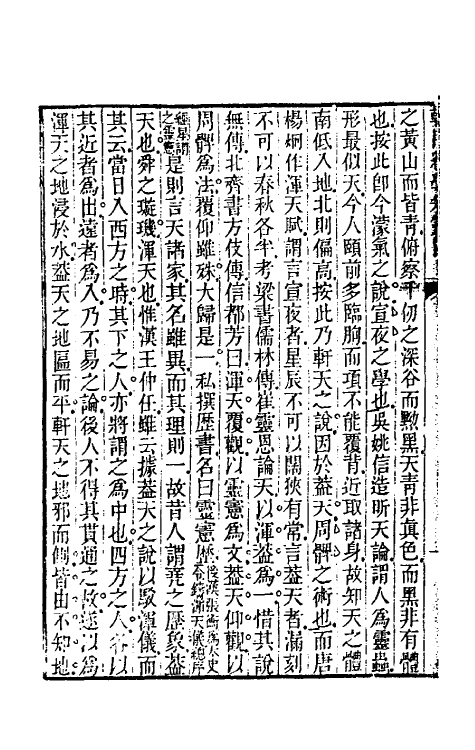 之黃山而皆青俯察千仞之深谷而黝黑天青非真色而黑非有體
也按此卽今濛氣之說宣夜之學也吳姚信造昕天論謂人爲靈蟲
形最似天今人頤前多臨胸而項不能覆背近取諸身故知天之體
南低入地北則偏高按此乃軒天之說因於葢天周髀之術也而唐
楊炯作渾天賦謂言宣夜者星辰不可以闊狹有常言葢天者漏刻
不可以春秋各半考梁書儒林傳崔靈恩論天以渾葢爲一惜其說
無傳北齊書方伎傳信都芳曰渾天覆觀以靈憲爲文葢天仰觀以
周髀爲法覆仰雖殊大歸是一私撰歷書名曰靈憲歷後漢張衡爲太史令鑄渾天儀總序
經星謂之靈憲是則言天諸家其名雖異而其理則一故昔人謂堯之歷象葢
天也舜之璇璣渾天也惟漢王仲任雖云據葢天之說以駁渾儀而
其云當日入西方之時其下之人亦將謂之爲中也四方之人各以
其近者爲出遠者爲入乃不易之論後人不得其貫通之故遂以爲
渾天之地浸於水葢天之地區而平軒天之地邪而倚皆由不知地